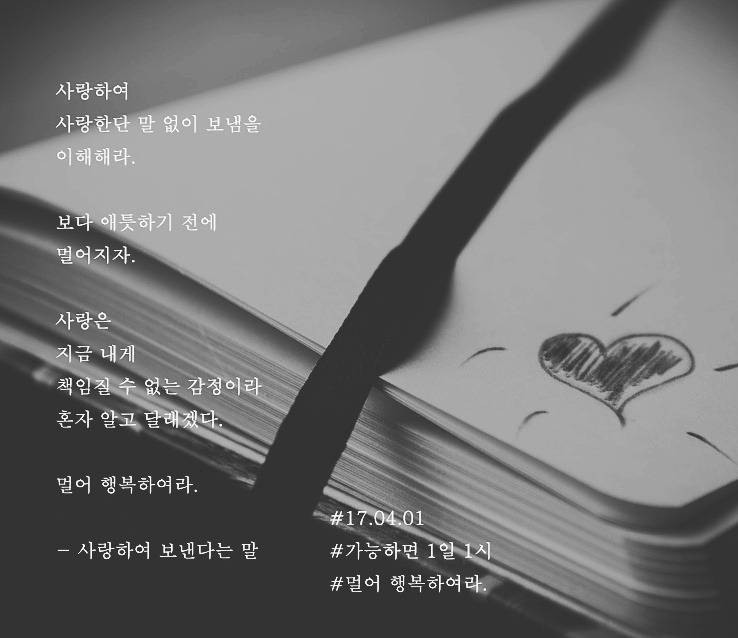 사랑하여
사랑한단 말 없이 보냄을
이해해라.
보다 애틋하기 전에
멀어지자.
사랑은
지금 내게
책임질 수 없는 감정이라
혼자 알고 달래겠다.
멀어 행복하여라.
- 사랑하여 보낸다는 말
#17.04.01
#가능하면 1일 1시
#멀어 행복하여라.